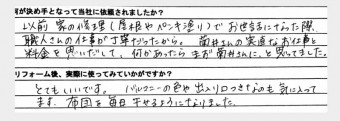 何が決め手となって当社に依頼されましたか?
以前 家の修理(屋根やペンキ塗り)でお世話になった際、
職人さんの仕事が丁寧だったから。 菊井さんの実直なお仕事と
料金を思いだして、何かあったら まず菊井さんに、と思ってました。
リフォーム後、実際に使ってみていかがですか?
とてもいいです。 バルコニーの色や出入り口つきなのも気に入って
ます。 布団を毎日干せるようになりました。